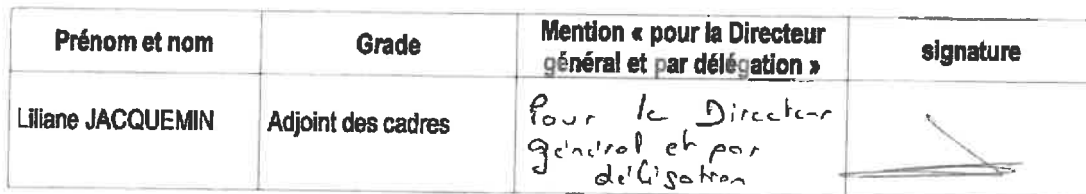 Prénom et nom
Grade
Mention « pour la Directeur
général et par délégation »
signature
Liliane JACQUEMIN
Adjoint des cadres
Pour le Directeur
général et par
délégation